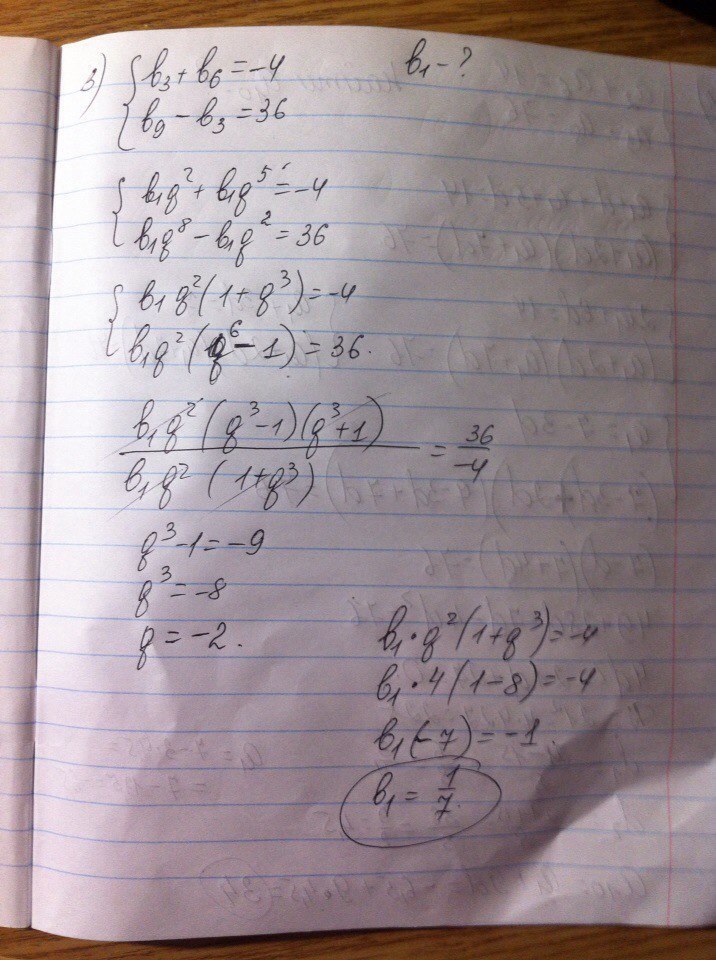 3) { b₃ + b₆ = -4      b₁ - ?
{ b₉ - b₃ = 36
{ b₁q² + b₁q⁵ = -4
{ b₁q⁸ - b₁q² = 36
{ b₁q²(1 + q³) = -4
{ b₁q²(q⁶ - 1) = 36.
b₁q²(q³-1)(q³+1) / b₁q²(1+q³) = 36/-4
q³ - 1 = -9
q³ = -8
q = -2.
b₁ · q²(1+q³) = -4
b₁ · 4(1-8) = -4
b₁(-7) = -1
b₁ = 1/7.